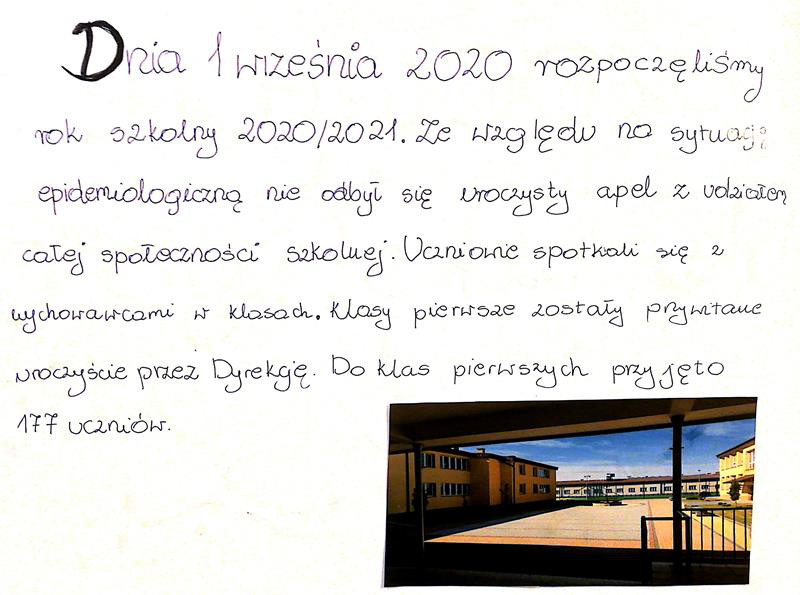 Dnia 1 września 2020 rozpoczęliśmy
rok szkolny 2020/2021. Ze względu na sytuację
epidemiologiczną nie odbył się uroczysty apel z udziałem
całej społeczności szkolnej. Uczniowie spotkali się z
wychowawcami w klasach. Klasy pierwsze zostały przywitane
uroczyście przez Dyrekcję. Do klas pierwszych przyjęto
177 uczniów.